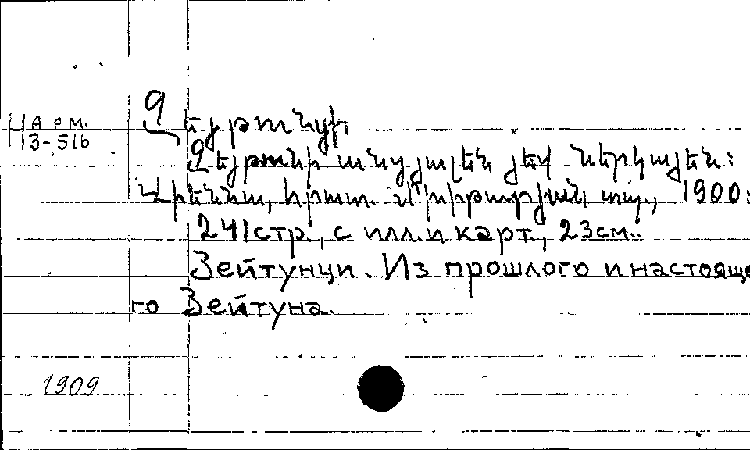 Զէյթունցի
Арм.
3-516
Զէյթունի անցյալէն յեվ ներկայէն:
Վիեննա, հրատ. Մխիթարյան տպ., 1900:
241 стр., с илл. и карт., 23 см.
Зейтунци. Из прошлого и настояще
го Зейтуна.
1909